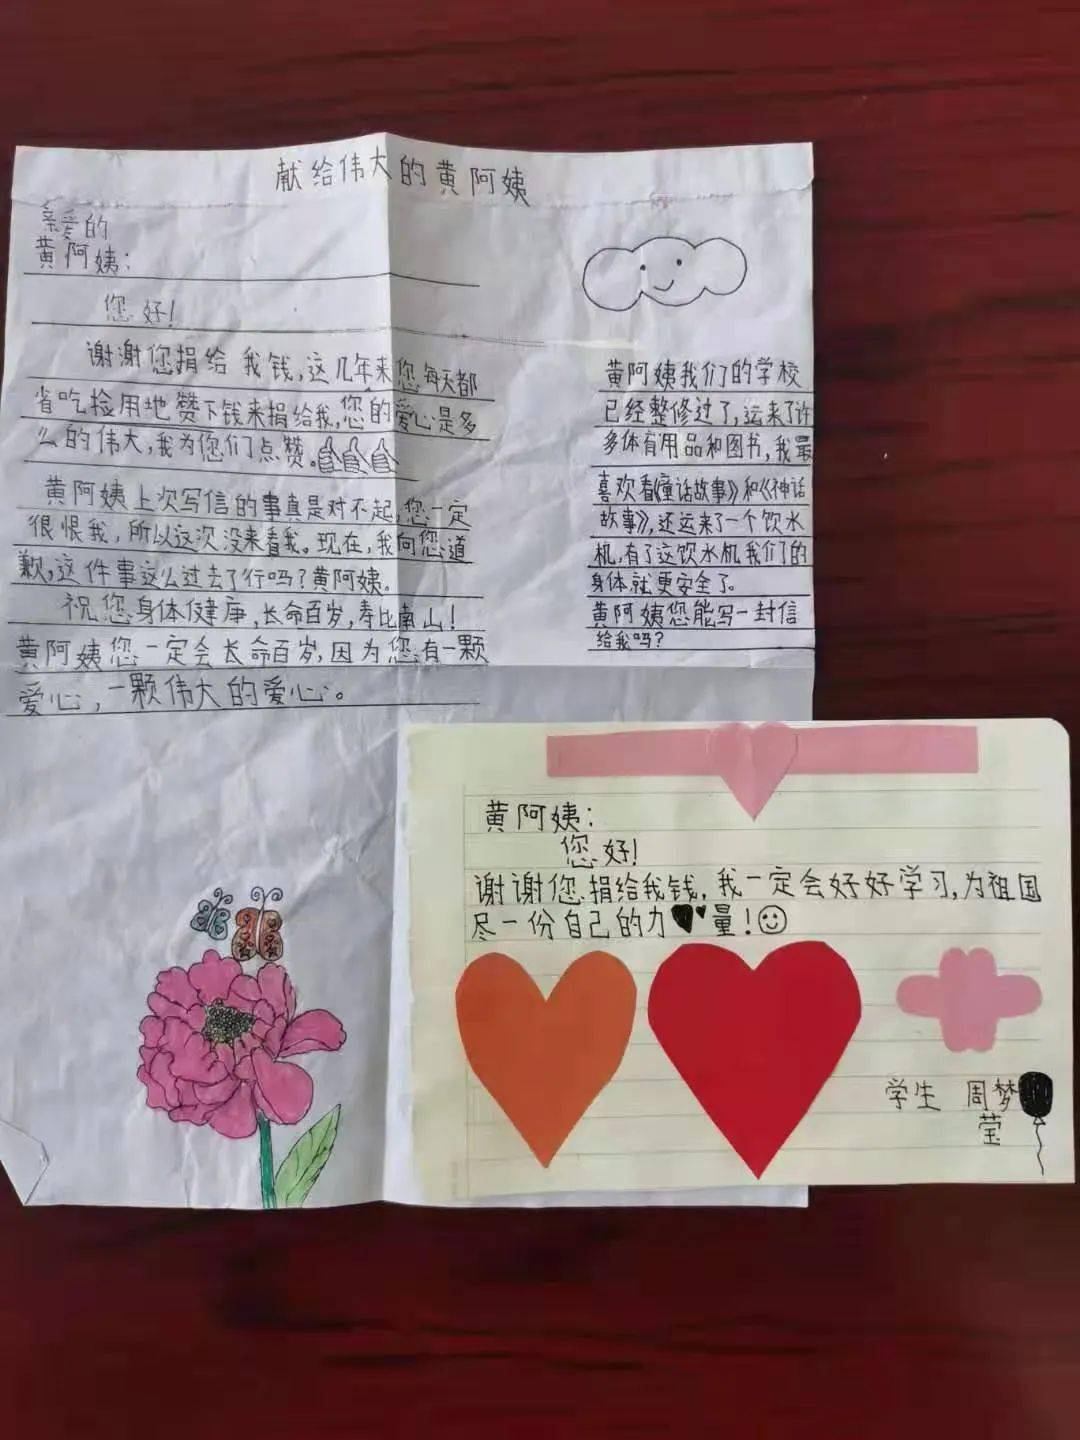 献给伟大的黄阿姨
亲爱的
黄阿姨:
您好!
谢谢您捐给我钱,这几年来您每天都
省吃捡用地赞下钱来捐给我,您的爱心是多
么的伟大,我为您们点赞。
黄阿姨上次写信的事真是对不起,您一定
很恨我,所以这次没来看我。现在,我向您道
歉,这件事这么过去了行吗?黄阿姨。
祝您身体健康,长命百岁,寿比南山!
黄阿姨您一定会长命百岁,因为您有一颗
爱心,一颗伟大的爱心。
黄阿姨我们的学校
已经整修过了,运来了许
多体育用品和图书,我最
喜欢看《童话故事》和《神话
故事》,还运来了一个饮水
机,有了这饮水机我们的
身体就更安全了。
黄阿姨您能写一封信
给我吗?
黄阿姨:
您好!
谢谢您捐给我钱,我一定会好好学习,为祖国
尽一份自己的力量!
学生 周梦
莹